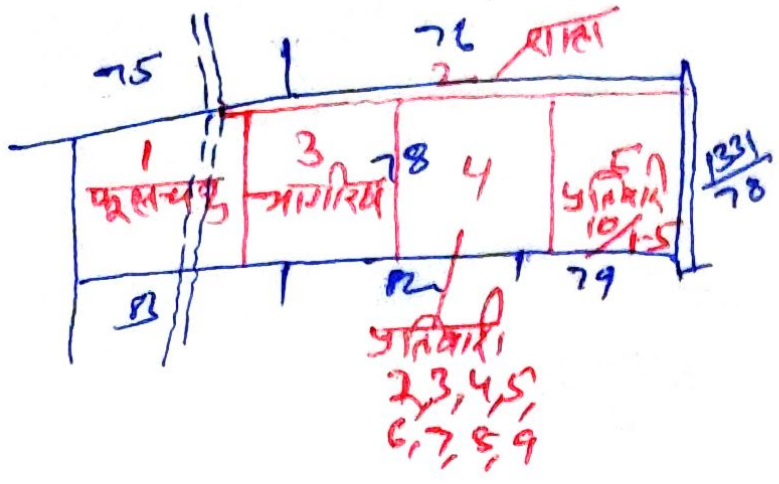 75
76
2 रास्ता
1
फूलचन्द
3
भागीरथ
78
4
5
प्रतिवादी
10/1-5
1331/78
83
82
79
प्रतिवादी
2,3,4,5,
6,7,8,9